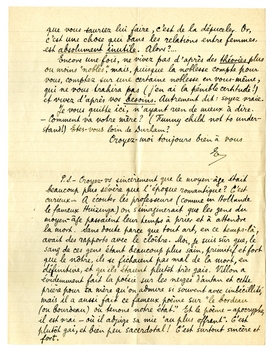 que vous sauriez lui faire, c'est de la dépuceler. Or,
c'est une chose qui dans les relations entre femmes
est absolument inutile. Alors?
Encore une fois, ne vivez pas d'après des théories plus
ou moins "nobles", mais, puisque la noblesse compte pour
vous, comptez sur une certaine noblesse en vous-même,
qui ne vous trahira pas (j'en ai la pénible certitude!)
et vivez d'après vos besoins. Autrement dit: soyez vraie.
Je vous quitte ici, n'ayant rien de mieux à dire.
Comment va votre mère? (Funny child not to under-
stand!) Etes-vous loin de Durham?
Croyez-moi toujours bien à vous
P.S. - Croyez-vs sincèrement que le moyen-âge était
beaucoup plus sévère que l'époque romantique? C'est
curieux. A écouter les professeurs (comme en Hollande
le fameux Huizenga) on s'imaginerait que les gens du
moyen-âge passaient leur temps à prier et à attendre
la mort. Sans doute parce que tout art, en ce temps-là,
avait des rapports avec le cloître. Moi, je suis sûr que, le
sang de ces gens étant beaucoup plus sain, primitif et fort
que le nôtre, ils se fichaient pas mal de la mort, en
définitive, et qu'ils étaient plutôt très gais. Villon a
évidemment fait la poésie sur les neiges d'antan et cette
prière pour sa mère qu'on admire si souvent avec imbécillité,
mais il a aussi fait ce fameux poème sur "le bordeau
(ou bourdeau) où tenons notre état". Et le poème-apocryphe,
est vrai - où il abjure sa mie "au plus offrant". C'est
plutôt gai, et bien peu sacerdotal! C'est surtout sincère
et fort.